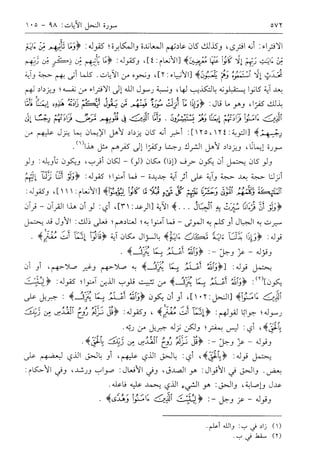 ٥٧٢ سورة النحل الآيات: ٩٨ - ١٠٥
الافتراء: أنه افترى، وكذلك كان عادتهم المعاندة والمكابرة؛ كقوله: ﴿وَمَا تَأْتِيهِم مِّنْ
ءَايَةٍ مِّنْ ءَايَٰتِ رَبِّهِمْ إِلَّا كَانُوا۟ عَنْهَا مُعْرِضِينَ﴾ [الأنعام: ٤]، وكقوله: ﴿مَا يَأْتِيهِم مِّن ذِكْرٍ مِّن رَّبِّهِم
مُّحْدَثٍ إِلَّا ٱسْتَمَعُوهُ وَهُمْ يَلْعَبُونَ﴾ [الأنبياء: ٢]، ونحوه من الآيات. كلما أتى بهم حجة وآية
بعد آية كانوا يستقبلونه بالتكذيب لها، ونسبة رسول الله إلى الافتراء من نفسه؛ ويزداد لهم
بذلك كفرًا، وهو ما قال: ﴿وَإِذَا مَآ أُنزِلَتْ سُورَةٌ فَمِنْهُم مَّن يَقُولُ أَيُّكُمْ زَادَتْهُ هَٰذِهِۦٓ إِيمَٰنًا فَأَمَّا
ٱلَّذِينَ ءَامَنُوا۟ فَزَادَتْهُمْ إِيمَٰنًا وَهُمْ يَسْتَبْشِرُونَ . وَأَمَّا ٱلَّذِينَ فِى قُلُوبِهِم مَّرَضٌ فَزَادَتْهُمْ رِجْسًا إِلَىٰ
رِجْسِهِمْ﴾ [التوبة: ١٢٤، ١٢٥]: أخبر أنه كان يزداد لأهل الإيمان بما ينزل عليهم من
سورة إيمانًا، ويزداد لأهل الشرك رجسًا وكفرًا إلى كفرهم مثل هذا(١).
ولو كان يحتمل أن يكون حرف (إذا) مكان (لو) - لكان أقرب، ويكون تأويله: ولو
أنزلنا حجة بعد حجة وآية على أثر آية جديدة - فما آمنوا؛ كقوله: ﴿وَلَوْ أَنَّنَا نَزَّلْنَآ إِلَيْهِمُ
ٱلْمَلَٰٓئِكَةَ وَكَلَّمَهُمُ ٱلْمَوْتَىٰ وَحَشَرْنَا عَلَيْهِمْ كُلَّ شَىْءٍ قُبُلًا مَّا كَانُوا۟ لِيُؤْمِنُوٓا۟﴾ [الأنعام: ١١١]، وكقوله:
﴿وَلَوْ أَنَّ قُرْءَانًا سُيِّرَتْ بِهِ ٱلْجِبَالُ...﴾ الآية [الرعد: ٣١]، أي: لو أن هذا القرآن - قرآن
سيرت به الجبال أو كلم به الموتى - فما آمنوا به؛ لعنادهم؛ فعلى ذلك: الأول قد يحتمل
قوله: ﴿وَإِذَا بَدَّلْنَآ ءَايَةً مَّكَانَ ءَايَةٍ﴾ بالسؤال مكان آية ﴿قَالُوٓا۟ إِنَّمَآ أَنتَ مُفْتَرٍ﴾.
وقوله - عز وجل -: ﴿وَٱللَّهُ أَعْلَمُ بِمَا يُنَزِّلُ﴾.
يحتمل قوله: ﴿وَٱللَّهُ أَعْلَمُ بِمَا يُنَزِّلُ﴾ به صلاحهم وغير صلاحهم، أو أن
يكون(٢): ﴿وَٱللَّهُ أَعْلَمُ بِمَا يُنَزِّلُ﴾ من تثبيت قلوب الذين آمنوا؛ كقوله: ﴿لِيُثَبِّتَ
ٱلَّذِينَ ءَامَنُوا۟﴾ [النحل: ١٠٢]، أو أن يكون ﴿وَٱللَّهُ أَعْلَمُ بِمَا يُنَزِّلُ﴾: جبريل على
رسوله؛ جوابًا لقولهم: ﴿إِنَّمَآ أَنتَ مُفْتَرٍ﴾، وكقوله: ﴿قُلْ نَزَّلَهُۥ رُوحُ ٱلْقُدُسِ مِن رَّبِّكَ
بِٱلْحَقِّ﴾، أي: ليس بمفتر؛ ولكن نزله جبريل من ربه.
وقوله - عز وجل -: ﴿قُلْ نَزَّلَهُۥ رُوحُ ٱلْقُدُسِ مِن رَّبِّكَ بِٱلْحَقِّ﴾.
يحتمل قوله: ﴿بِٱلْحَقِّ﴾، أي: بالحق الذي عليهم، أو بالحق الذي لبعضهم على
بعض. والحق في الأقوال: هو الصدق، وفي الأفعال: صواب ورشد، وفي الأحكام:
عدل وإصابة، والحق: هو الشيء الذي يحمد عليه فاعله.
وقوله - عز وجل -: ﴿لِيُثَبِّتَ ٱلَّذِينَ ءَامَنُوا۟ وَهُدًى﴾.
(١) زاد في ب: والله أعلم.
(٢) سقط في ب.